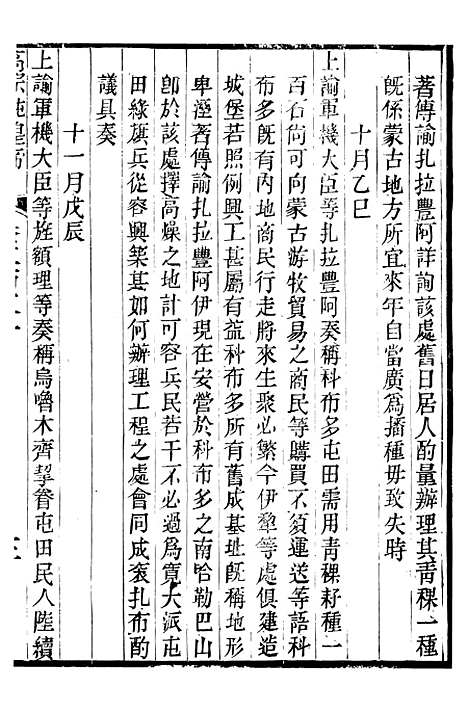 著傳諭扎拉豐阿詳詢該處舊日居人酌量辦理其靑稞一種
旣係蒙古地方所宜來年自當廣爲播種毋致失時
十月乙巳
上諭軍機大臣等扎拉豐阿奏稱科布多屯田需用靑稞籽種一
百石尙可向蒙古游牧貿易之商民等購買不須運送等語科
布多旣有內地商民行走將來生聚必繁今伊犂等處俱建造
城堡若照例興工甚屬有益科布多所有舊成基址旣稱地形
卑溼著傳諭扎拉豐阿伊現在安營於科布多之南哈勒巴山
卽於該處擇高燥之地計可容兵民若干不必過爲寛大派屯
田綠旗兵從容興築其如何辦理工程之處會同成袞扎布酌
議具奏
十一月戊辰
上諭軍機大臣等旌額理等奏稱烏嚕木齊挈眷屯田民人陸續
高宗純皇帝